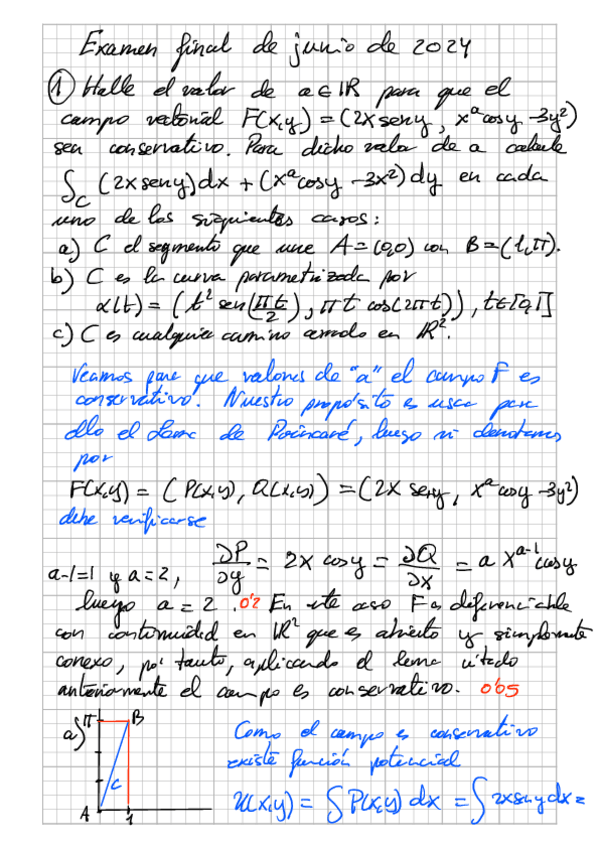 Examen final de junio de 2024
① Halle el valor de a∈ℝ para que el
campo vectorial F(x,y) = (2x sen y, x^a cos y - 3y²)
sea conservativo. Para dicho valor de a calcule
∫_C (2x sen y) dx + (x^a cos y - 3x²) dy en cada
uno de los siguientes casos:
a) C el segmento que une A=(0,0) con B=(1,π).
b) C es la curva parametrizada por
α(t) = (t² sen(πt/2), πt cos(2πt)), t∈[0,1]
c) C es cualquier camino cerrado en ℝ².
Veamos para que valores de "a" el campo F es
conservativo. Nuestro propósito es usar para
ello el Lema de Poincaré, luego si denotamos
por
F(x,y) = (P(x,y), Q(x,y)) = (2x sen y, x^a cos y - 3y²)
debe verificarse
a-1=1 y a=2, ∂P/∂y = 2x cos y = ∂Q/∂x = a x^{a-1} cos y
luego a = 2. 0'2 En este caso F es diferenciable
con continuidad en ℝ² que es abierto y simplemente
conexo, por tanto, aplicando el lema citado
anteriormente el campo es conservativo. 0'05
a) π B C A 1
Como el campo es conservativo
existe función potencial
U(x,y) = ∫P(x,y) dx = ∫2x sen y dx =